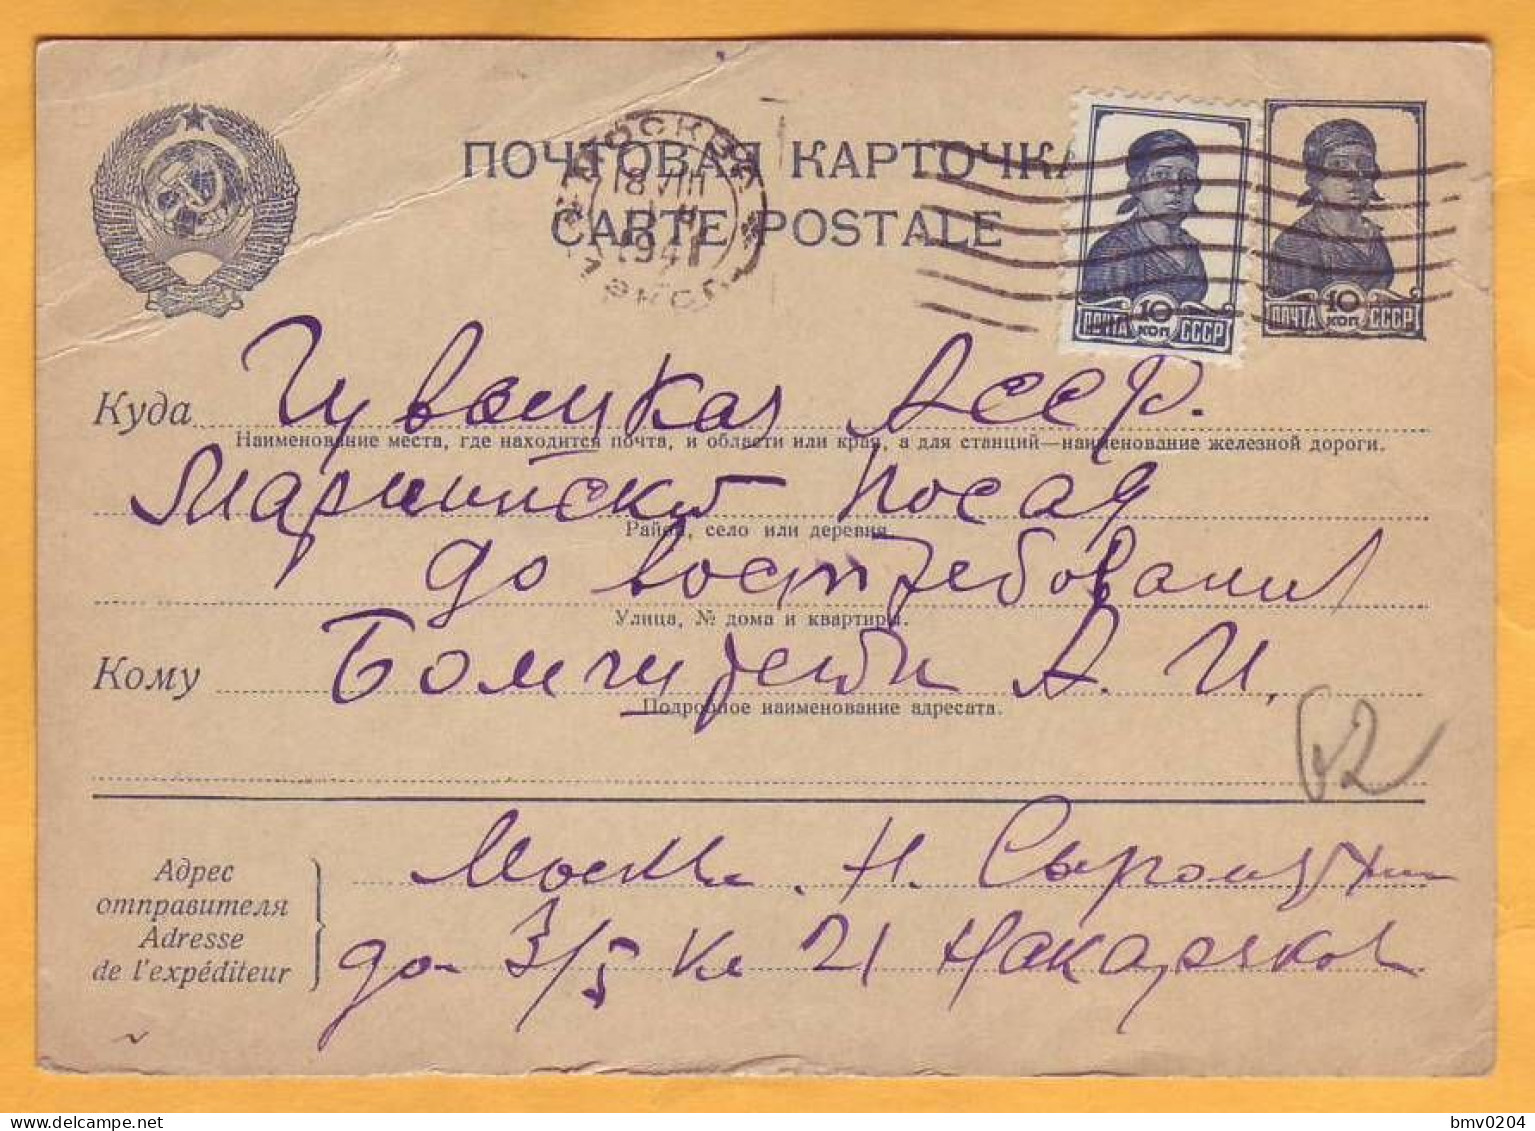 ПОЧТОВАЯ КАРТОЧКА
CARTE POSTALE
МОСКВА
18 VIII
1941
ЭКСП
10 КОП
ПОЧТА СССР
10 КОП
ПОЧТА СССР
Куда Чувашская АССР.
Наименование места, где находится почта, и области или края, а для станций—наименование железной дороги.
Мариинский Посад
Район, село или деревня.
до востребования
Улица, № дома и квартиры.
Кому А. И.
Подробное наименование адресата.
62
Адрес отправителя
Adresse de l'expéditeur
Москва. Н.
дом 3/5 кв 21
bmv0204